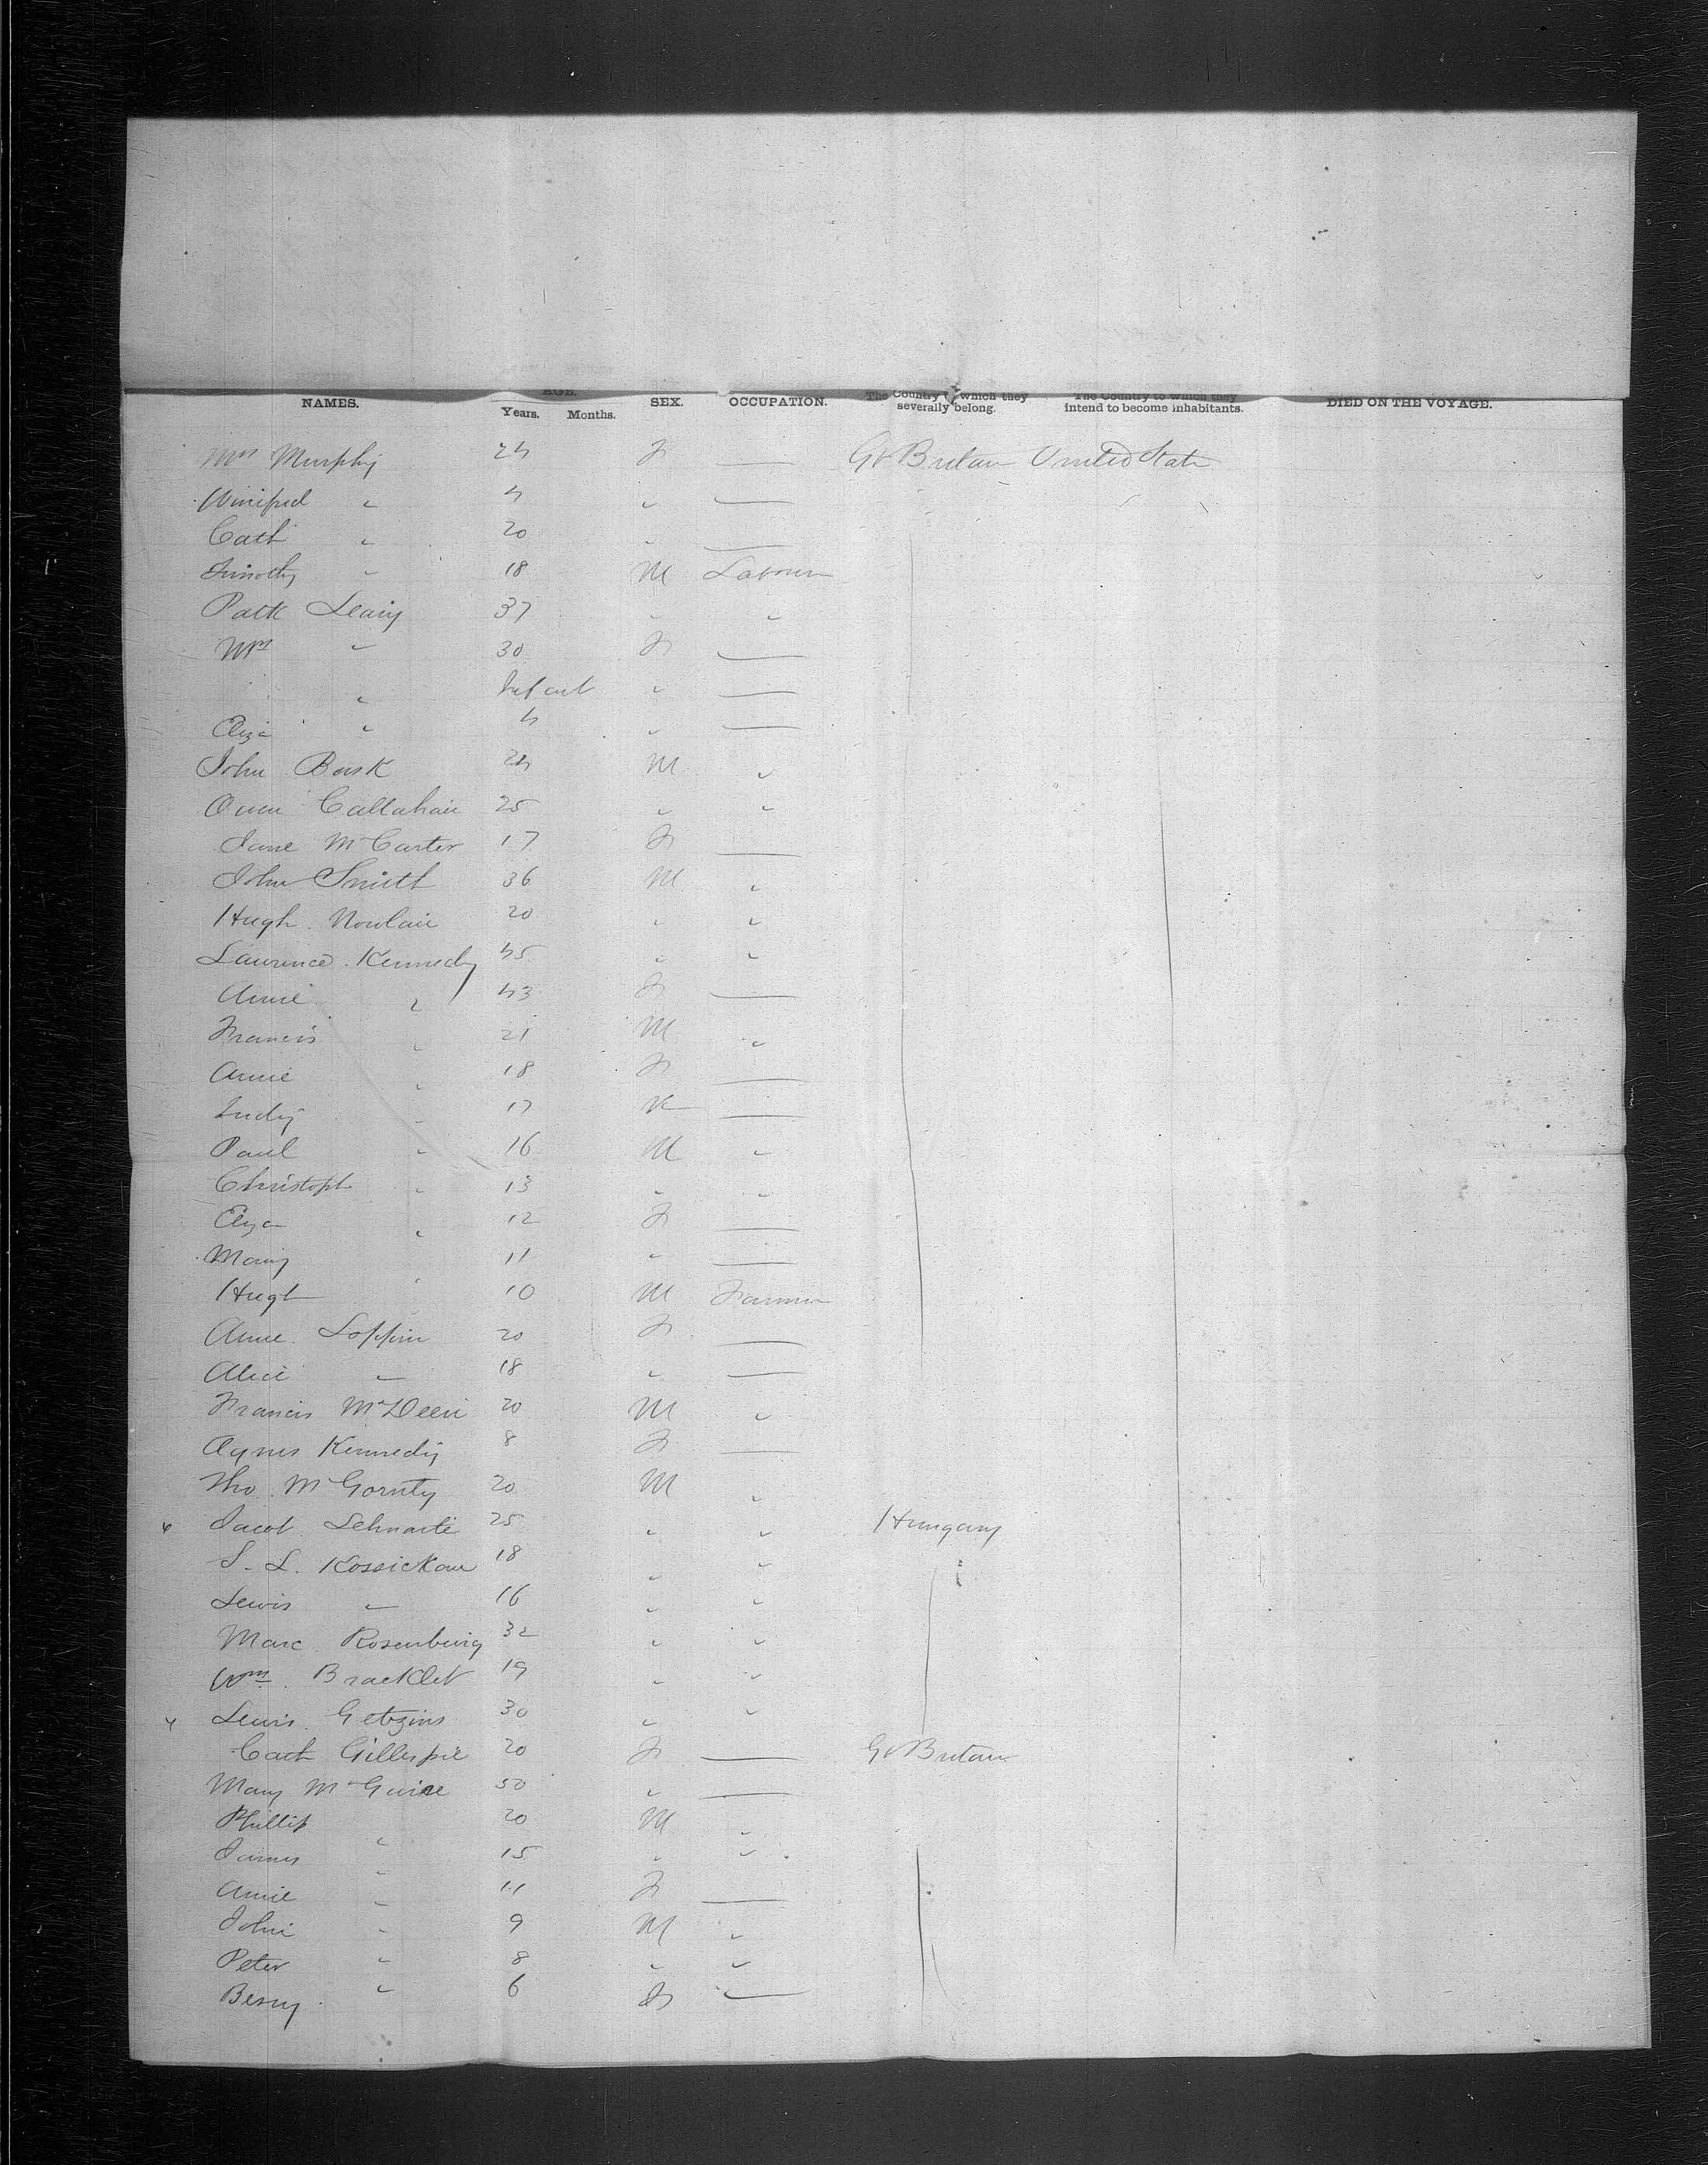 NAMES. AGE. Years. Months. SEX. OCCUPATION. The Country to which they severally belong. The Country to which they intend to become inhabitants. DIED ON THE VOYAGE.
Mrs Murphy 24 F — Gt Britain United State
Winifred " 4 " —
Cath " 20 " —
Timothy " 18 M Labourer
Patk Leary 37 " "
Mrs " 30 F —
" Infant " —
Eliza " 4 " —
John Bask 24 M "
Owen Callahan 25 " "
Jane McCarter 17 F —
John Smith 36 M "
Hugh Nowlan 20 " "
Laurence Kennedy 45 " "
Annie " 43 F —
Francis " 21 M "
Annie " 18 F —
Judy " 17 —
Paul " 16 M "
Christoph " 13 " "
Eliza " 12 F —
Mary 11 " —
Hugh " 10 M Farmer
Anne Loppin 20 F —
Alice " 18 " —
Francis 20 M "
Agnes Kennedy 8 F —
Tho McGornty 20 M "
Jacob 25 " " Hungary
S. L. Kossickow 18 " " "
Lewis " 16 " "
Marc Rosenburg 32 " "
Wm Bracklet 19 " "
Lewis Getzins 30 " "
Cath Gillespie 20 F — Gt Britain
Mary McGuire 50 " —
Phillip " 20 M "
James " 15 " "
Annie " 11 F —
John " 9 M "
Peter " 8 " "
Bessy " 6 F —